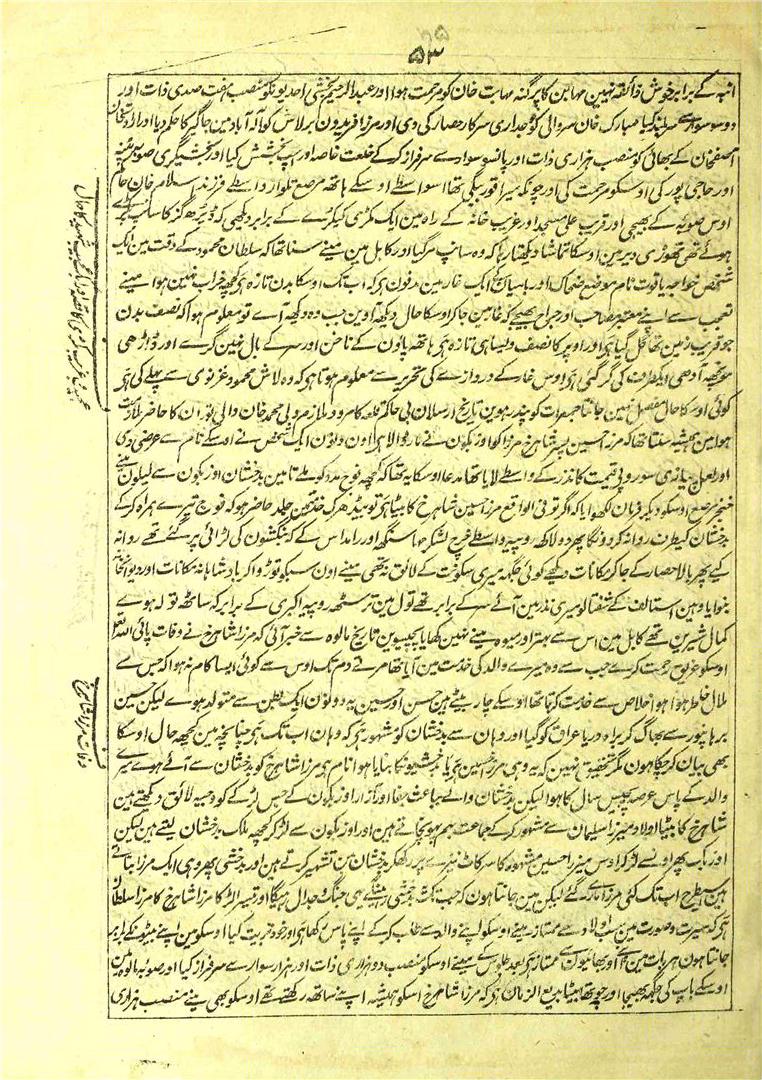 ۵۳
انبہ کے برابر خوش ذائقہ نہین مہابن کا پرگنہ مہابت خان کو مرحمت ہوا اور عبدالرحیم بخشی احدیونکو منصب ہفت صدی ذات اور
دو سو سوار سے سربلند کیا مبارک خان سروانی کو فوجداری سرکار حصار کی دی اور مرزا فریدون برلاس کو الہ آباد مین جاگیر کا حکم دیا اور ارادتخان
آصفخان کے بھائی کو منصب ہزاری ذات اور پانسو سوار سے سرفراز کر کے خلعت خاصہ اور اسپ بخشش کیا اور بخشیگری صوبہ پٹنہ
اور حاجی پور کی اوسکو مرحمت کی اور چونکہ میرا قوربیگی تھا اسواسطے اوسکے ہاتھ مرصع تلوار واسطے فرزند اسلام خان حاکم
اوس صوبہ کے بھیجی اور قریب علی مسجد اور غریب خانہ کے راہ مین ایک مکڑی کیکڑے کے برابر دیکھی کہ ڈیڑھ گز کا سانپ پکڑے
ہوئے تھی تھوڑی دیر مین اوسکا تماشا دیکھتا رہا کہ وہ سانپ مر گیا اور کابل مین مینے سنا تھا کہ سلطان محمود کے وقت مین ایک
شخص خواجہ یاقوت نام موضع ضحاک اور بامیان کے ایک غار مین مدفون ہی کہ اب تک اوسکا بدن تازہ ہی کچھ خراب نہین ہوا مینے
تعجب سے اپنے معتبر مصاحب اور جراح بھیجے کہ غار مین جا کر اوسکا حال دیکھ آوین جب وہ دیکھ آئے تو معلوم ہوا کہ نصف بدن
جو قریب زمین تھا گل گیا ہی اور اوپر کا نصف ویسا ہی تازہ ہی ہاتھ پاون کے ناخن اور سر کے بال نہین گرے اور ڈاڑھی
مونچھہ آدھی ایکطرف کی گر گئی ہی اوس غار کے دروازے کی تحریر سے معلوم ہوتا ہی کہ وہ لاش محمود غزنوی سے پہلے کی ہی
کوئی اوسکا حال مفصل نہین جانتا جمعرات کو پندرہوین تاریخ ارسلان بی حاکم قلعہ کامرد و ملازم ولی محمد خان والی توران کا حاضر ملازمت
ہوا مین ہمیشہ سنتا تھا کہ مرزا حسین پسر شاہرخ مرزا کو اوزبکون نے مار ڈالا ہی اون دنون ایک شخص نے اوسکے نام سے عرضی دی
اور لعل پیازی سو روپی قیمت کا نذر کے واسطے لایا تھا مدعا اوسکا یہ تھا کہ کچھہ فوج مدد کو ملے تا مین بدخشان اوزبکون سے لیلون مینے
خنجر مرصع اوسکو دیکر فرمان لکھوایا کہ اگر تو فی الواقع مرزا حسین شاہرخ کا بیٹا ہی تو بیدھڑک خدمتمین جلد حاضر ہو کہ فوج تیرے ہمراہ کر کے
بدخشان کیطرف روانہ کر دونگا پھر دو لاکھہ روپیہ واسطے خرچ لشکر مہا سنگھہ اور رامداس کے کہ بنگشون کی لڑائی پر گئے تھے روانہ
کیے پھر بالا حصار کے جا کر مکانات دیکھے کوئی جگہہ میری سکونت کے لائق نہ تھی مینے اون سبکو توڑوا کر بادشاہانہ مکانات اور دیوانخانہ
بنوایا وہین استالف کے شفتالو میری نذر مین آئے سر کے برابر تھے تول مین ترسٹھہ روپیہ اکبری کے برابر کہ ساٹھہ تولہ ہوے
کمال شیرین تھے کابل مین اس سے بہتر اور میوہ مینے نہین کھایا پچیسوین تاریخ مالوہ سے خبر آئی کہ مرزا شاہرخ نے وفات پائی اللہ تعالی
اوسکو غریق رحمت کرے جب سے وہ میرے والد کی خدمت مین آیا تھا مرتے دم تک اوس سے کوئی ایسا کام نہ ہوا کہ جس سے
ملال خاطر ہوا ہو اخلاص سے خدمت کرتا تھا اوسکے چار بیٹے ہین حسن اور حسین یہ دونون ایک بطن سے متولد ہوے لیکن حسین
برہانپور سے بھاگ کر براہ دریا عراق کو گیا اور وہان سے بدخشان کو مشہور ہی کہ وہان اب تک ہی چنانچہ مین کچھہ حال اوسکا
بھی بیان کر چکا ہون مگر تحقیق نہین کہ یہ وہی مرزا حسین ہی یا بدخشیونکا بنایا ہوا نام ہی مرزا شاہرخ کو بدخشان سے آئے ہوے میرے
والد کے پاس عرصہ پچیس سال کا ہوا لیکن بدخشان والے بباعث جفا اور آزار اوزبکون کے جس لڑکے کو وجیہ لائق دیکھتے ہین
شاہرخ کا بیٹا اولاد میرزا سلیمان سے مشہور کر کے جماعت بہم پہونچاتے ہین اور اوزبکون سے لڑ کر کچھہ ملک بدخشان لیتے ہین لیکن
اوزبک پھر اونسے لڑ کر اوس میرزا حسین مشہور کا سر کاٹ نیزے پر رکھکر بدخشان مین تشہیر کرتے ہین اور بدخشی پھر وہی ایک مرزا بناتے
ہین اسیطرح اب تک کئی مرزا مارے گئے لیکن مین جانتا ہون کہ جب تک بدخشی رہینگے یہی جنگ جدال رہیگا اور تیسرا لڑکا مرزا شاہرخ کا مرزا سلطان
ہی کہ سیرت و صورت مین سب اولاد سے ممتاز ہی مینے اوسکو اپنے والد سے طلب کر کے اپنے پاس رکھا ہی اور خود تربیت کیا اوسکو مین اپنے بیٹونکے برابر
جانتا ہون ہر بات مین اپنے اور بھائیون سے ممتاز ہی بعد جلوس کے مینے اوسکو منصب دو ہزاری ذات اور ہزار سوار سے سرفراز کیا اور صوبہ مالوہ مین
اوسکے باپ کی جگہہ بھیجا اور چوتھا بیٹا بدیع الزمان ہی کہ مرزا شاہرخ اسکو ہمیشہ اپنے ساتھ رکھتے تھے اوسکو بھی مینے منصب ہزاری
وفات مرزا شاہرخ